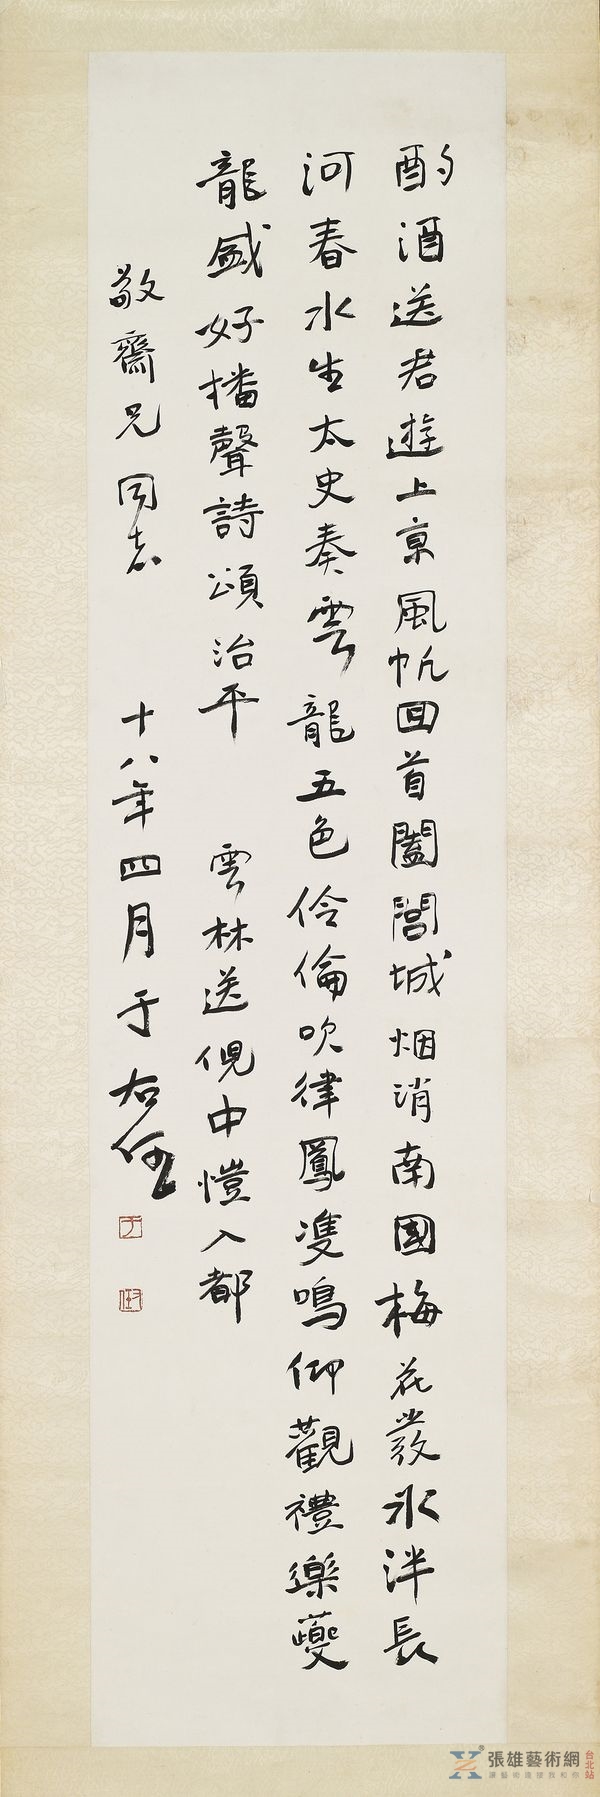 酌酒送君遊上京風帆回首闔閭城烟消南國梅花發冰泮長
河春水生太史奏雲龍五色伶倫吹律鳳雙鳴仰觀禮樂夔
龍盛好播聲詩頌治平 雲林送倪中愷入都
敬齋兄同志 十八年四月于右任
張雄藝術網
台北站